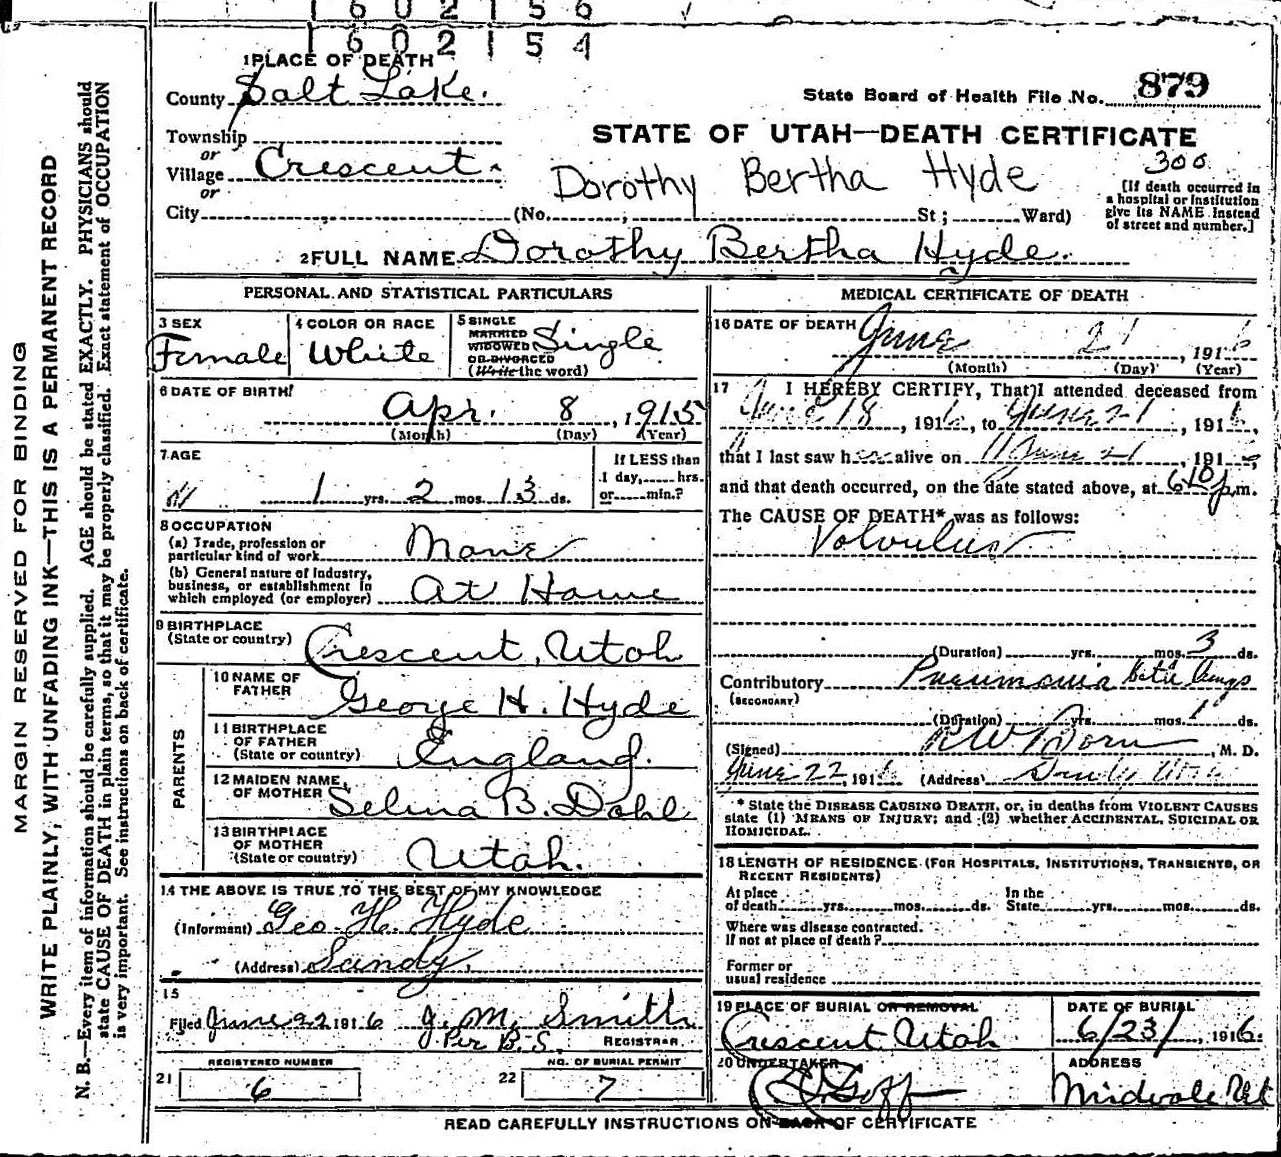 1 6 0 2 1 5 6
1 6 0 2 1 5 4
MARGIN RESERVED FOR BINDING
WRITE PLAINLY, WITH UNFADING INK—THIS IS A PERMANENT RECORD
N. B.—Every item of information should be carefully supplied. AGE should be stated EXACTLY. PHYSICIANS should
state CAUSE OF DEATH in plain terms, so that it may be properly classified. Exact statement of OCCUPATION
is very important. See instructions on back of certificate.
1 PLACE OF DEATH
County Salt Lake.
State Board of Health File No. 879
Township
or
Village Crescent.
or
City (No. St; Ward)
STATE OF UTAH—DEATH CERTIFICATE
300
Dorothy Bertha Hyde
[If death occurred in
a hospital or institution
give its NAME instead
of street and number.]
2 FULL NAME Dorothy Bertha Hyde.
PERSONAL AND STATISTICAL PARTICULARS
3 SEX
Female
4 COLOR OR RACE
White
5 SINGLE
MARRIED
WIDOWED
OR DIVORCED
(Write the word)
Single
6 DATE OF BIRTH
Apr. 8, 1915
(Month) (Day) (Year)
7 AGE
1 yrs. 2 mos. 13 ds.
If LESS than
1 day, hrs.
or min.?
8 OCCUPATION
(a) Trade, profession or
particular kind of work None
(b) General nature of industry,
business, or establishment in
which employed (or employer) At Home
9 BIRTHPLACE
(State or country) Crescent, Utah
PARENTS
10 NAME OF
FATHER George H. Hyde
11 BIRTHPLACE
OF FATHER
(State or country) England.
12 MAIDEN NAME
OF MOTHER Selma B. Dahl
13 BIRTHPLACE
OF MOTHER
(State or country) Utah.
14 THE ABOVE IS TRUE TO THE BEST OF MY KNOWLEDGE
(Informant) Geo H. Hyde
(Address) Sandy.
15
Filed June 22 1916 J. M. Smith
Per B. S. REGISTRAR
REGISTERED NUMBER
21 6
NO. OF BURIAL PERMIT
22 7
MEDICAL CERTIFICATE OF DEATH
16 DATE OF DEATH June 21, 1916
(Month) (Day) (Year)
17 I HEREBY CERTIFY, That I attended deceased from
June 18, 1916, to June 21, 1916,
that I last saw her alive on June 21, 191
and that death occurred, on the date stated above, at 610 p.m.
The CAUSE OF DEATH* was as follows:
Volvulus
(Duration) yrs. mos. 3 ds.
Contributory Pneumonia both lungs
(SECONDARY)
(Duration) yrs. mos. 1 ds.
(Signed) R W Born, M. D.
June 22, 1916 (Address) Sandy Utah
* State the DISEASE CAUSING DEATH, or, in deaths from VIOLENT CAUSES
state (1) MEANS OF INJURY; and (2) whether ACCIDENTAL, SUICIDAL OR
HOMICIDAL.
18 LENGTH OF RESIDENCE (FOR HOSPITALS, INSTITUTIONS, TRANSIENTS, OR
RECENT RESIDENTS)
At place
of death yrs. mos. ds.
In the
State yrs. mos. ds.
Where was disease contracted.
If not at place of death?
Former or
usual residence
19 PLACE OF BURIAL OR REMOVAL
Crescent Utah
DATE OF BURIAL
6/23/, 1916.
20 UNDERTAKER
Goff
ADDRESS
Midvale Ut
READ CAREFULLY INSTRUCTIONS ON BACK OF CERTIFICATE